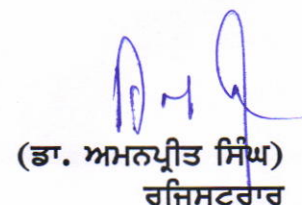 (ਡਾ. ਅਮਨਪ੍ਰੀਤ ਸਿੰਘ)
ਰਜਿਸਟਰਾਰ